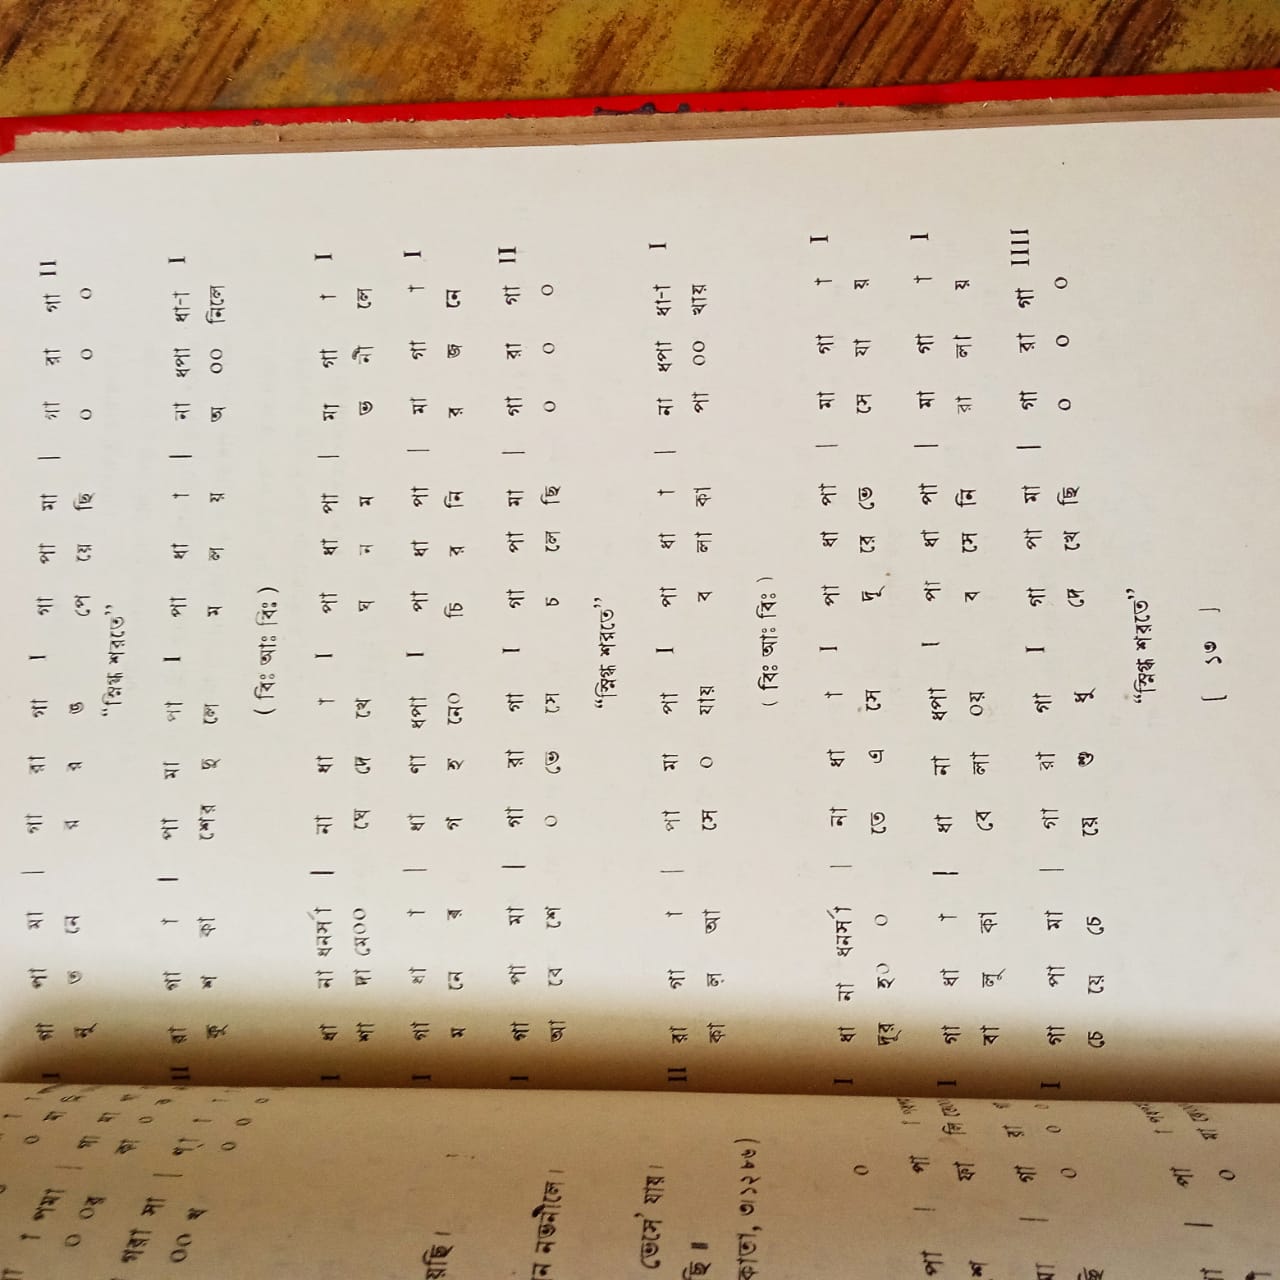 I গা পা মা | গা রা গা I গা পা মা | গা রা গা II
নূ ত নে র র ত পে য়ে ছি ০ ০ ০
“স্নিগ্ধ শরতে”
II রা গা া | পা মা পা I পা ধা া | না ধপা ধা-া I
কু শ কা শের দু লে ম ল য় অ ০০ নিলে
( বিঃ আঃ বিঃ )
I ধা না ধনর্সা | না ধা া I পা ধা পা | মা গা া I
শা দা মে০০ ঘে দে খে ঘ ন ম ভ নী লে
I গা ধা া | ধা ণা ধপা I পা ধা পা | মা গা া I
ম নে র গ হ নে০ চি র নি র জ নে
I গা পা মা | গা রা গা I গা পা মা | গা রা গা II
আ বে শে ০ তে সে চ লে ছি ০ ০ ০
“স্নিগ্ধ শরতে”
II রা গা া | পা মা পা I পা ধা া | না ধপা ধা-া I
কা ল্‌ আ সে ০ যায় ব লা কা পা ০০ খায়
( বিঃ আঃ বিঃ )
I ধা না ধনর্সা | না ধা া I পা ধা পা | মা গা া I
দূর হ০ ০ তে এ সে দূ রে তে সে যা য়
I গা ধা া | ধা না ধপা I পা ধা পা | মা গা া I
বা লু কা বে লা ০য় ব সে নি রা লা য়
I গা পা মা | গা রা গা I গা পা মা | গা রা গা IIII
চে য়ে চে য়ে শু ধু দে খে ছি ০ ০ ০
“স্নিগ্ধ শরতে”
[ ১৩ ]
য়ছি।
ন নভনীলে।
ভেসে’ যায়।
ছি॥
কাতা, ৩।১২৮৬)